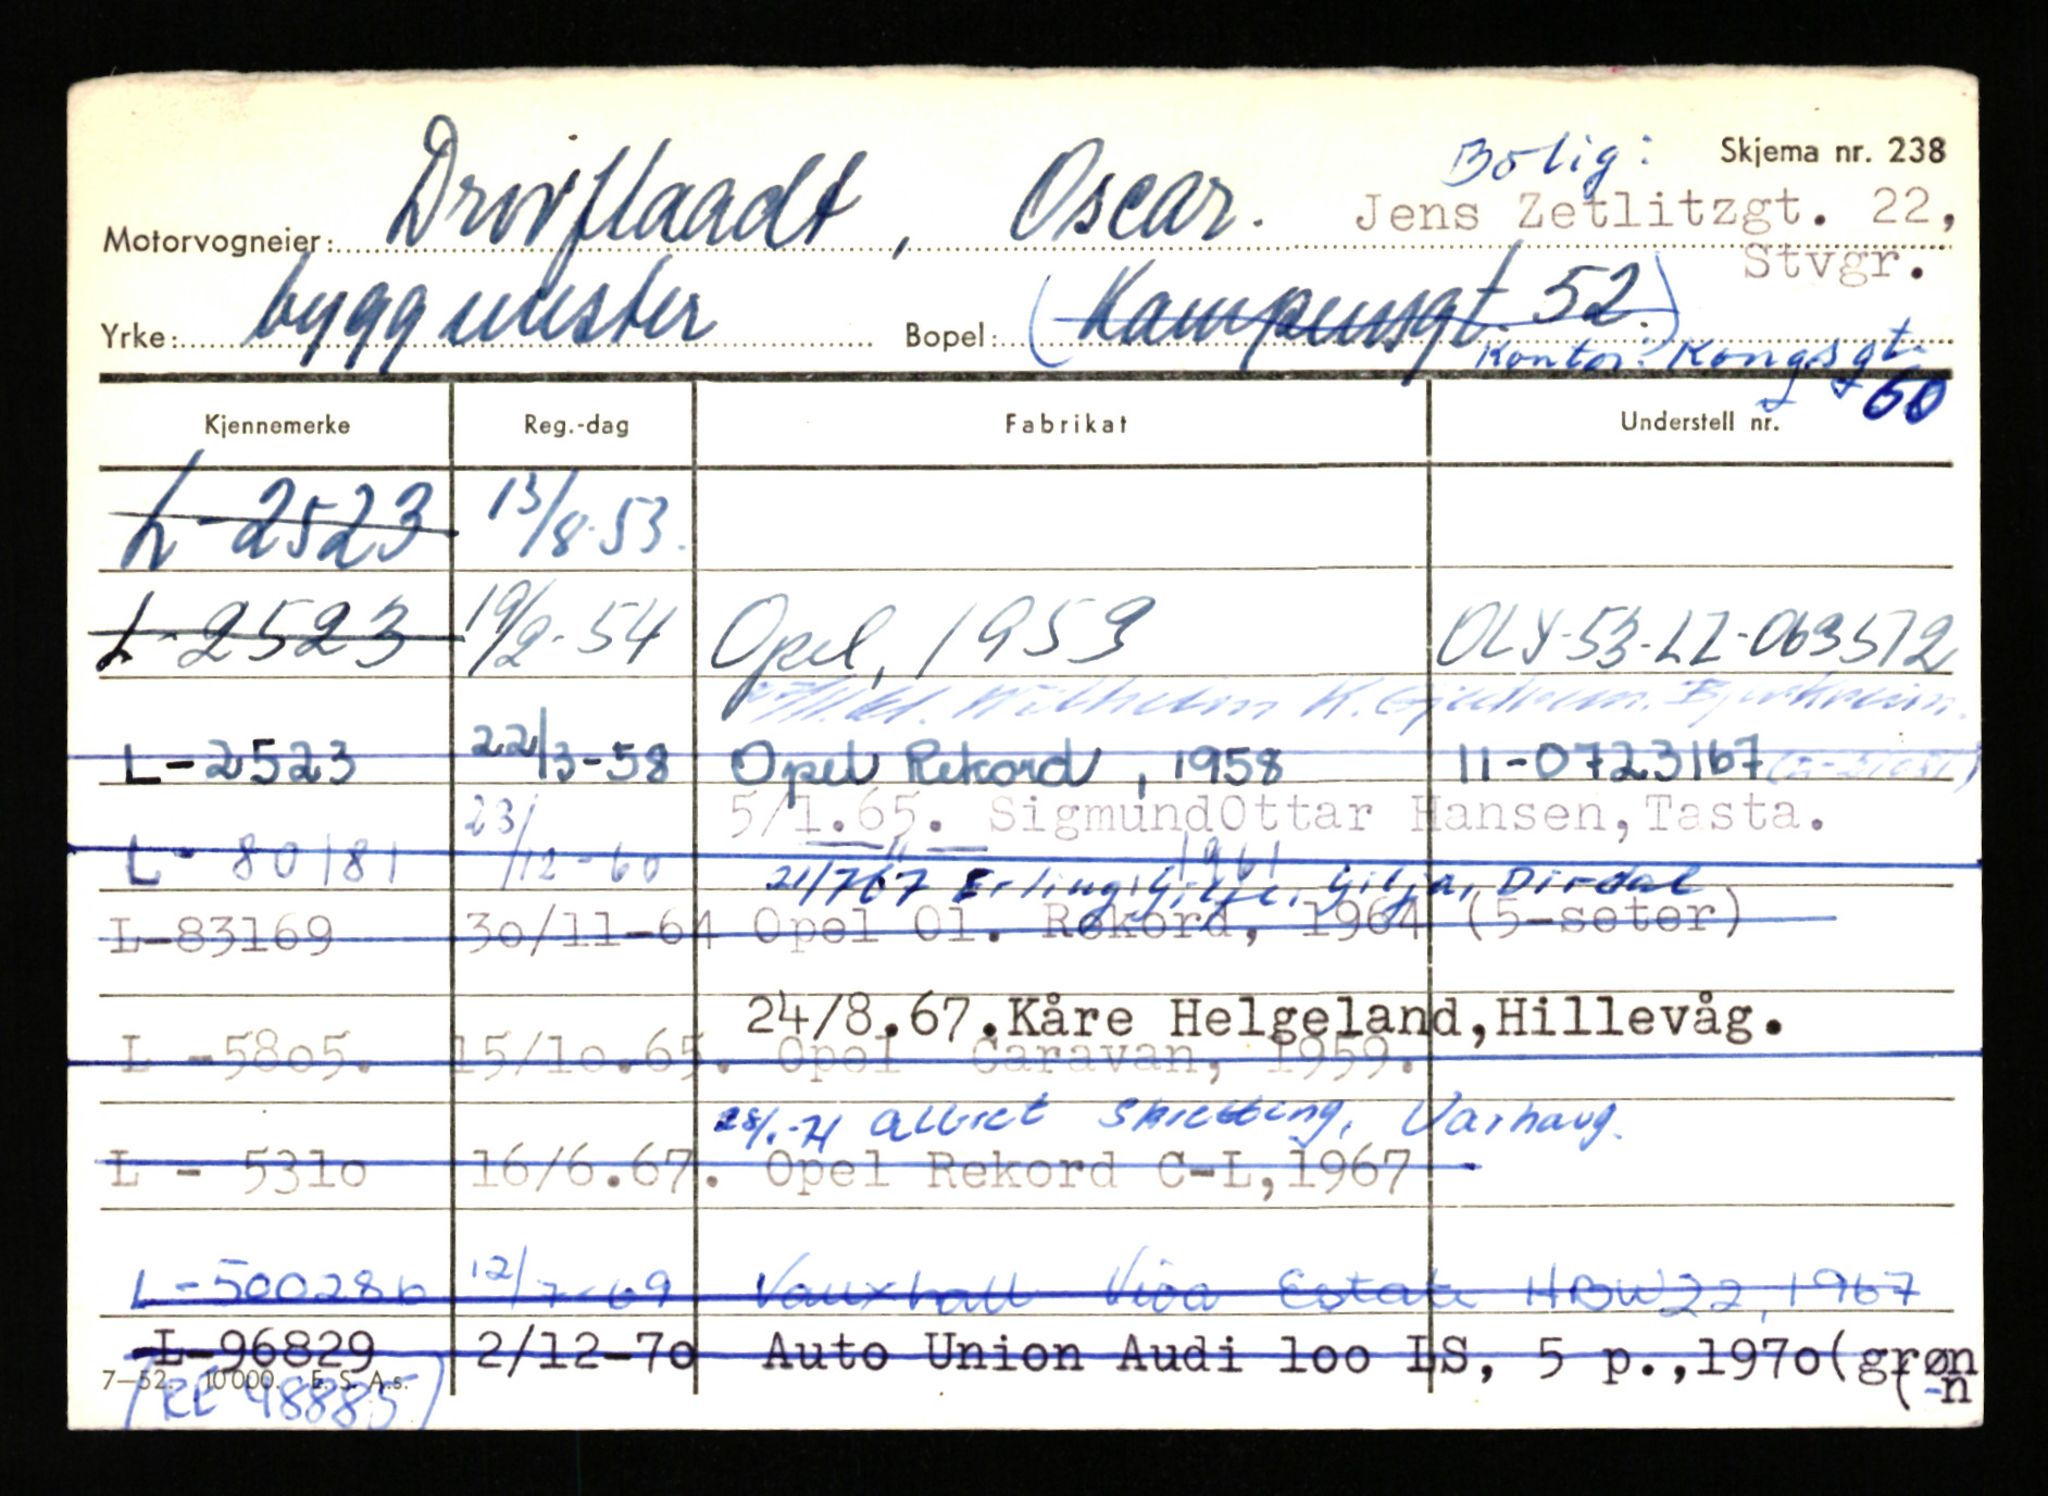 Bolig: Skjema nr. 238
Motorvogneier: Drivflaadt, Oscar. Jens Zetlitzgt. 22,
Stvgr.
Yrke: byggmester Bopel: (Kampensgt. 52.)
Kontor: Kongsgt.
60
Kjennemerke Reg.-dag Fabrikat Understell nr.
L-2523 13/8-53.
L-2523 19/2-54 Opel, 1953 OLY-53-LZ-063572
Wilhelm K.
L-2523 22/3-58 Opel Rekord, 1958 11-0723167
5/1.65. SigmundOttar Hansen,Tasta.
L- 80181 23/12-60 —„— 1961
21/767 Erling Gilje, Gilja, Dirdal
L-83169 30/11-64 Opel Ol. Rekord, 1964 (5-seter)
24/8.67.Kåre Helgeland,Hillevåg.
L -5805. 15/10.65. Opel Caravan, 1959.
Albret Skretting, Varhaug.
L - 5310 16/6.67. Opel Rekord C-L,1967
L-500286 12/7-69 Vauxhall Viva Estate HBW22, 1967
L-96829 2/12-70 Auto Union Audi 100 LS, 5 p.,1970(grøn
(-n
7-52. 10000. E. S. A.s.
(RE 98885)